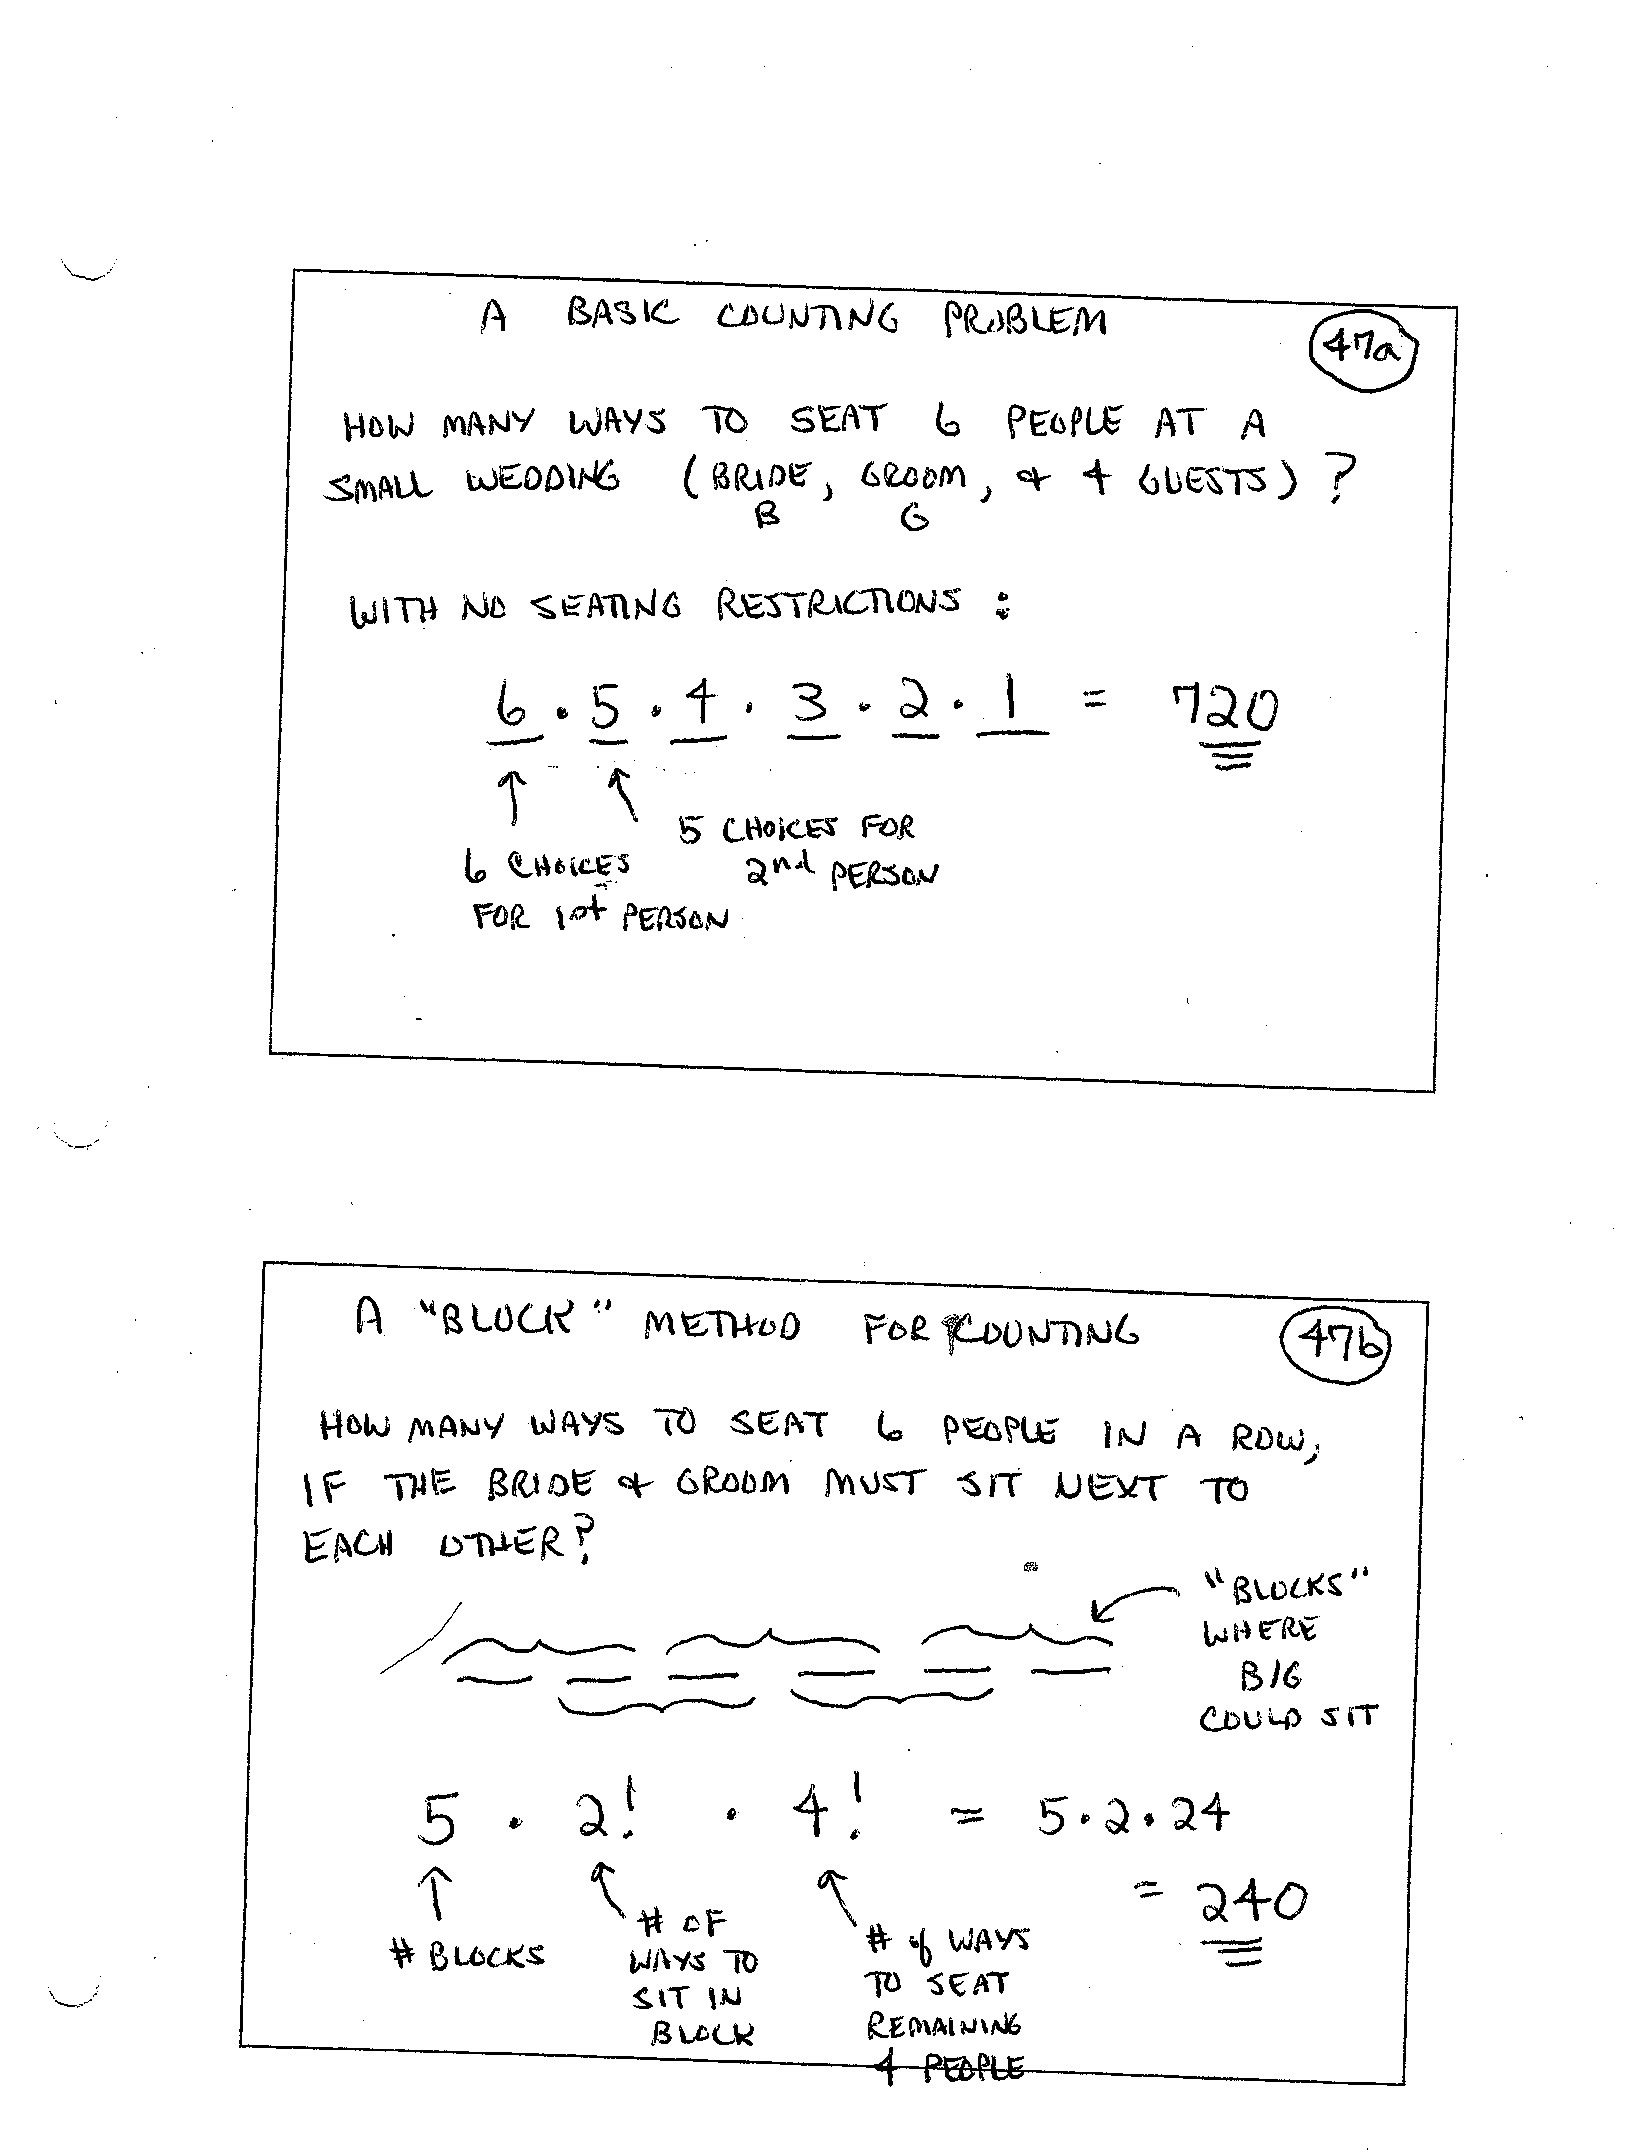 A BASIC COUNTING PROBLEM
47a
HOW MANY WAYS TO SEAT 6 PEOPLE AT A
SMALL WEDDING (BRIDE, GROOM, & 4 GUESTS)?
B G
WITH NO SEATING RESTRICTIONS:
6 · 5 · 4 · 3 · 2 · 1 = 720
↑ ↑
5 CHOICES FOR
2nd PERSON
6 CHOICES
FOR 1st PERSON
A "BLOCK" METHOD FOR COUNTING
47b
HOW MANY WAYS TO SEAT 6 PEOPLE IN A ROW,
IF THE BRIDE & GROOM MUST SIT NEXT TO
EACH OTHER?
"BLOCKS"
WHERE
B/G
COULD SIT
5 · 2! · 4! = 5·2·24
= 240
# BLOCKS
# OF
WAYS TO
SIT IN
BLOCK
# of WAYS
TO SEAT
REMAINING
4 PEOPLE